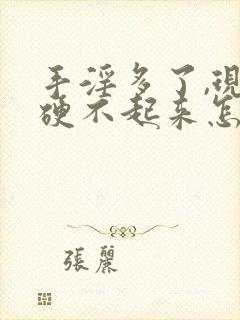 手淫多了,現
硬不起来怎
張麗